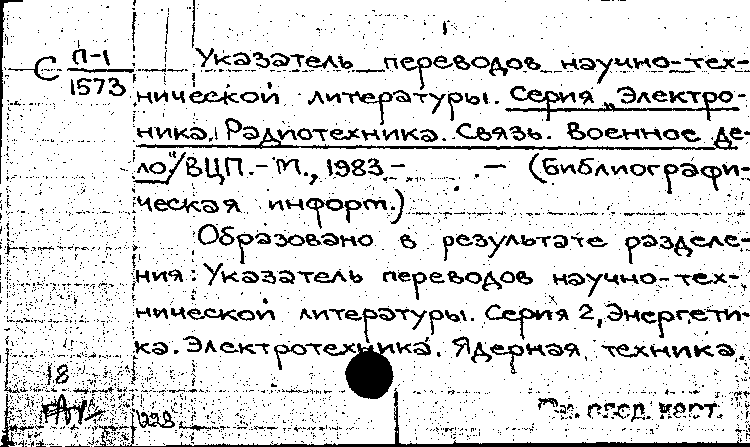 С П-1 Указатель переводов научно-тех-
1573 нической литературы. Серия „Электро-
ника. Радиотехника. Связь. Военное де-
ло"/ВЦП. - М., 1983 - . - (Библиографи-
ческая информ.)
Образовано в результате разделе-
ния: Указатель переводов научно-тех-
нической литературы. Серия 2, Энергети-
ка. Электротехника. Ядерная техника.
18
См. след. карт.